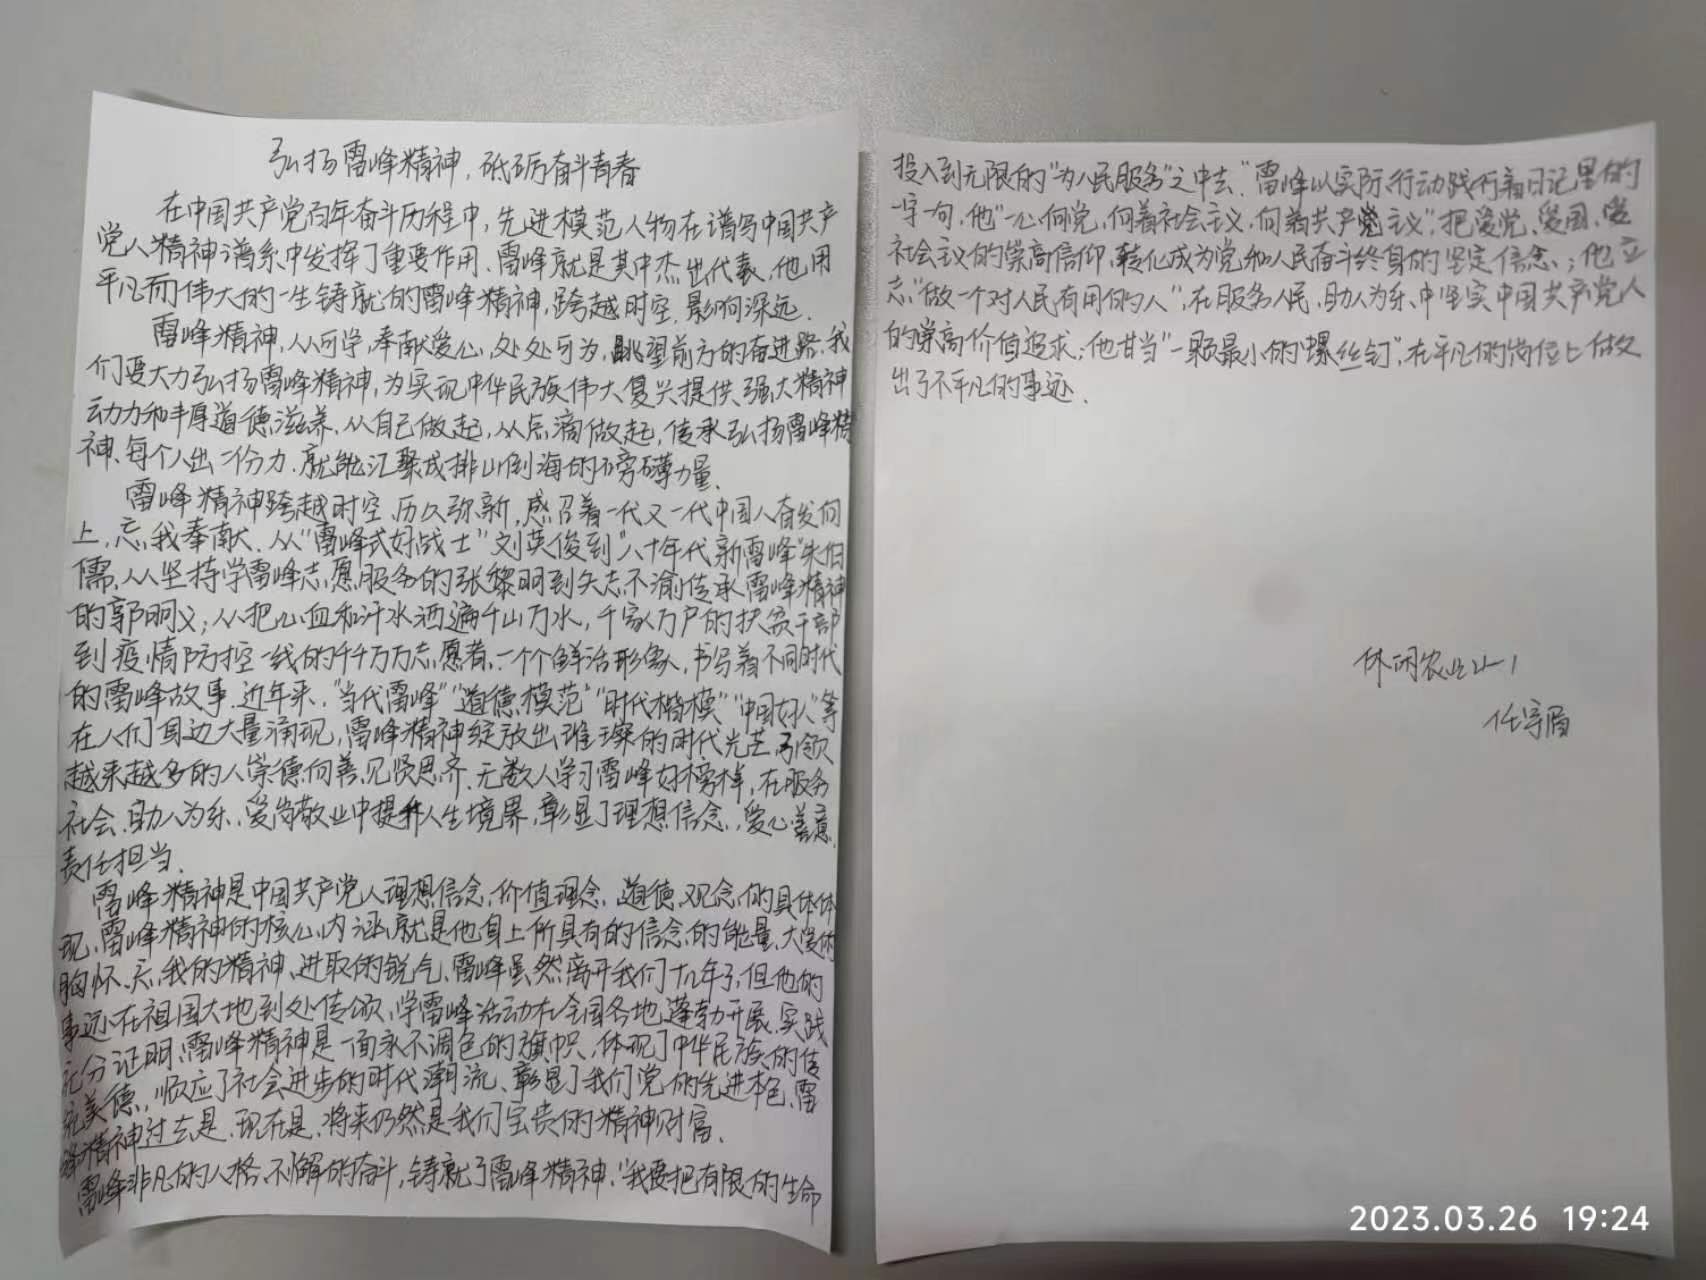 弘扬雷峰精神，砥砺奋斗青春
在中国共产党百年奋斗历程中，先进模范人物在谱写中国共产
党人精神谱系中发挥了重要作用、雷峰就是其中杰出代表、他用
平凡而伟大的一生铸就的雷峰精神，跨越时空、影响深远．
雷峰精神，人人可学，奉献爱心，处处可为，眺望前方的奋进路，我
们要大力弘扬雷峰精神，为实现中华民族伟大复兴提供强大精神
动力和丰厚道德滋养、从自己做起，从点滴做起，传承弘扬雷峰精
神、每个人出一份力、就能汇聚成排山倒海的磅礴力量．
雷峰精神跨越时空、历久弥新，感召着一代又一代中国人奋发向
上、忘我奉献、从“雷峰式好战士”刘英俊到“八十年代新雷峰”朱伯
儒、从坚持学雷峰志愿服务的张黎明到矢志不渝传承雷峰精神
的郭明义；从把心血和汗水洒遍千山万水，千家万户的扶贫干部
到疫情防控一线的千千万万志愿者、一个个鲜活形象，书写着不同时代
的雷峰故事．近年来，“当代雷峰”“道德模范”“时代楷模”“中国好人”等
在人们身边大量涌现，雷峰精神绽放出璀璨的时代光芒，引领
越来越多的人崇德向善、见贤思齐．无数人学习雷峰好榜样，在服务
社会、助人为乐、爱岗敬业中提升人生境界，彰显了理想信念、爱心善意、
责任担当．
雷峰精神是中国共产党人理想信念、价值理念、道德观念的具体体
现、雷峰精神的核心内涵就是他身上所具有的信念的能量、大爱的
胸怀、忘我的精神、进取的锐气、雷峰虽然离开我们 年了，但他的
事迹在祖国大地到处传颂，学雷峰活动在全国各地蓬勃开展、实践
充分证明，雷峰精神是一面永不调色的旗帜，体现了中华民族的传
统美德，顺应了社会进步的时代潮流、彰显了我们党的先进本色、雷
峰精神过去是、现在是、将来仍然是我们宝贵的精神财富．
雷峰非凡的人格、不懈的奋斗，铸就了雷峰精神．“我要把有限的生命
投入到无限的“为人民服务”之中去．”雷峰以实际行动践行着日记里的
一字一句，他“一心向党，向着社会主义，向着共产党主义”，把爱党、爱国、爱
社会主义的崇高信仰、转化成为党和人民奋斗终身的坚定信念；他立
志“做一个对人民有用的人”，在服务人民，助人为乐中坚实中国共产党人
的崇高价值追求；他甘当“一颗最小的螺丝钉”，在平凡的岗位上做
出了不平凡的事迹．
休闲农业21-1
任宇眉
2023.03.26 19:24